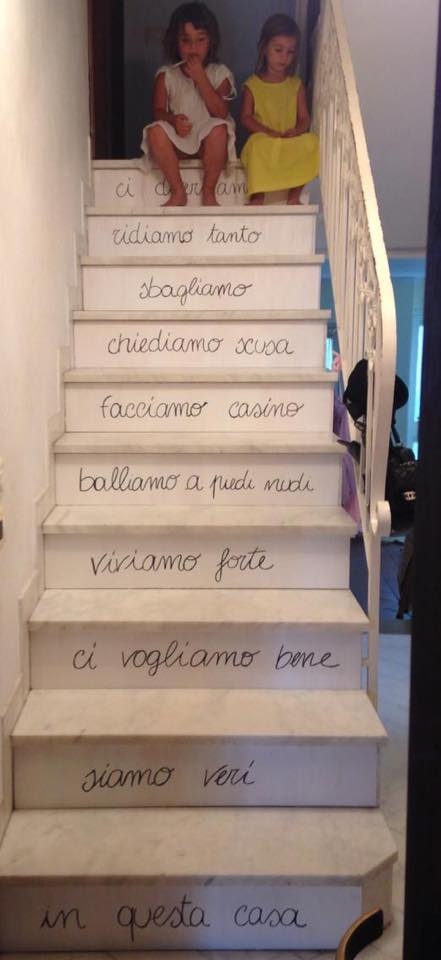 in questa casa
siamo veri
ci vogliamo bene
viviamo forte
balliamo a piedi nudi
facciamo casino
chiediamo scusa
sbagliamo
ridiamo tanto
ci